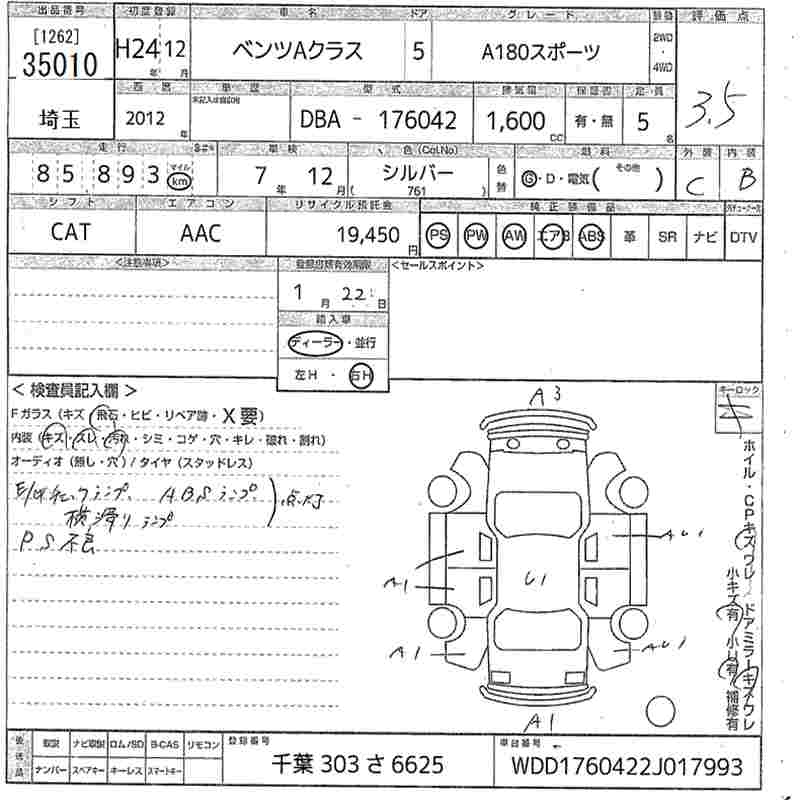 出品番号 初度登録 車名 ドア グレード 駆動 評価点
[1262]
35010 H24 12 ベンツAクラス 5 A180スポーツ 2WD・4WD 3.5
年 月
西暦 車歴 型式 排気量 保証書 定員
未記入は自家用
埼玉 2012年 DBA - 176042 1,600cc 有・無 5名
走行 車検 色 (Col.No) 燃料 外装 内装
85893 マイル km 7年 12月 シルバー (761) 色替 G・D・電気( その他 ) C B
シフト エアコン リサイクル預託金 純正装備品
CAT AAC 19,450円 PS PW AW エアB ABS 革 SR ナビ DTV
<注意事項> 登録書類有効期限 <セールスポイント>
1月 22日
輸入車
ディーラー・並行
左H・右H
A3
<検査員記入欄> キーロック
Fガラス (キズ・飛石・ヒビ・リペア跡・X要)
内装 (キズ・スレ・汚れ・シミ・コゲ・穴・キレ・破れ・割れ)
オーディオ (無し・穴) / タイヤ (スタッドレス)
ランプ、A.B.Sランプ、
横滑りランプ )点灯
P.S不良
A1
AU1
U1
A1
AU1
A1
ホイル・CPキズワレ ドアミラーキズワレ
小キズ有 小U有 補修有
後送品 取説 ナビ取説 ロム/SD B-CAS リモコン 登録番号 車台番号
ナンバー スペアキー キーレス スマートキー 千葉 303 さ 6625 WDD1760422J017993